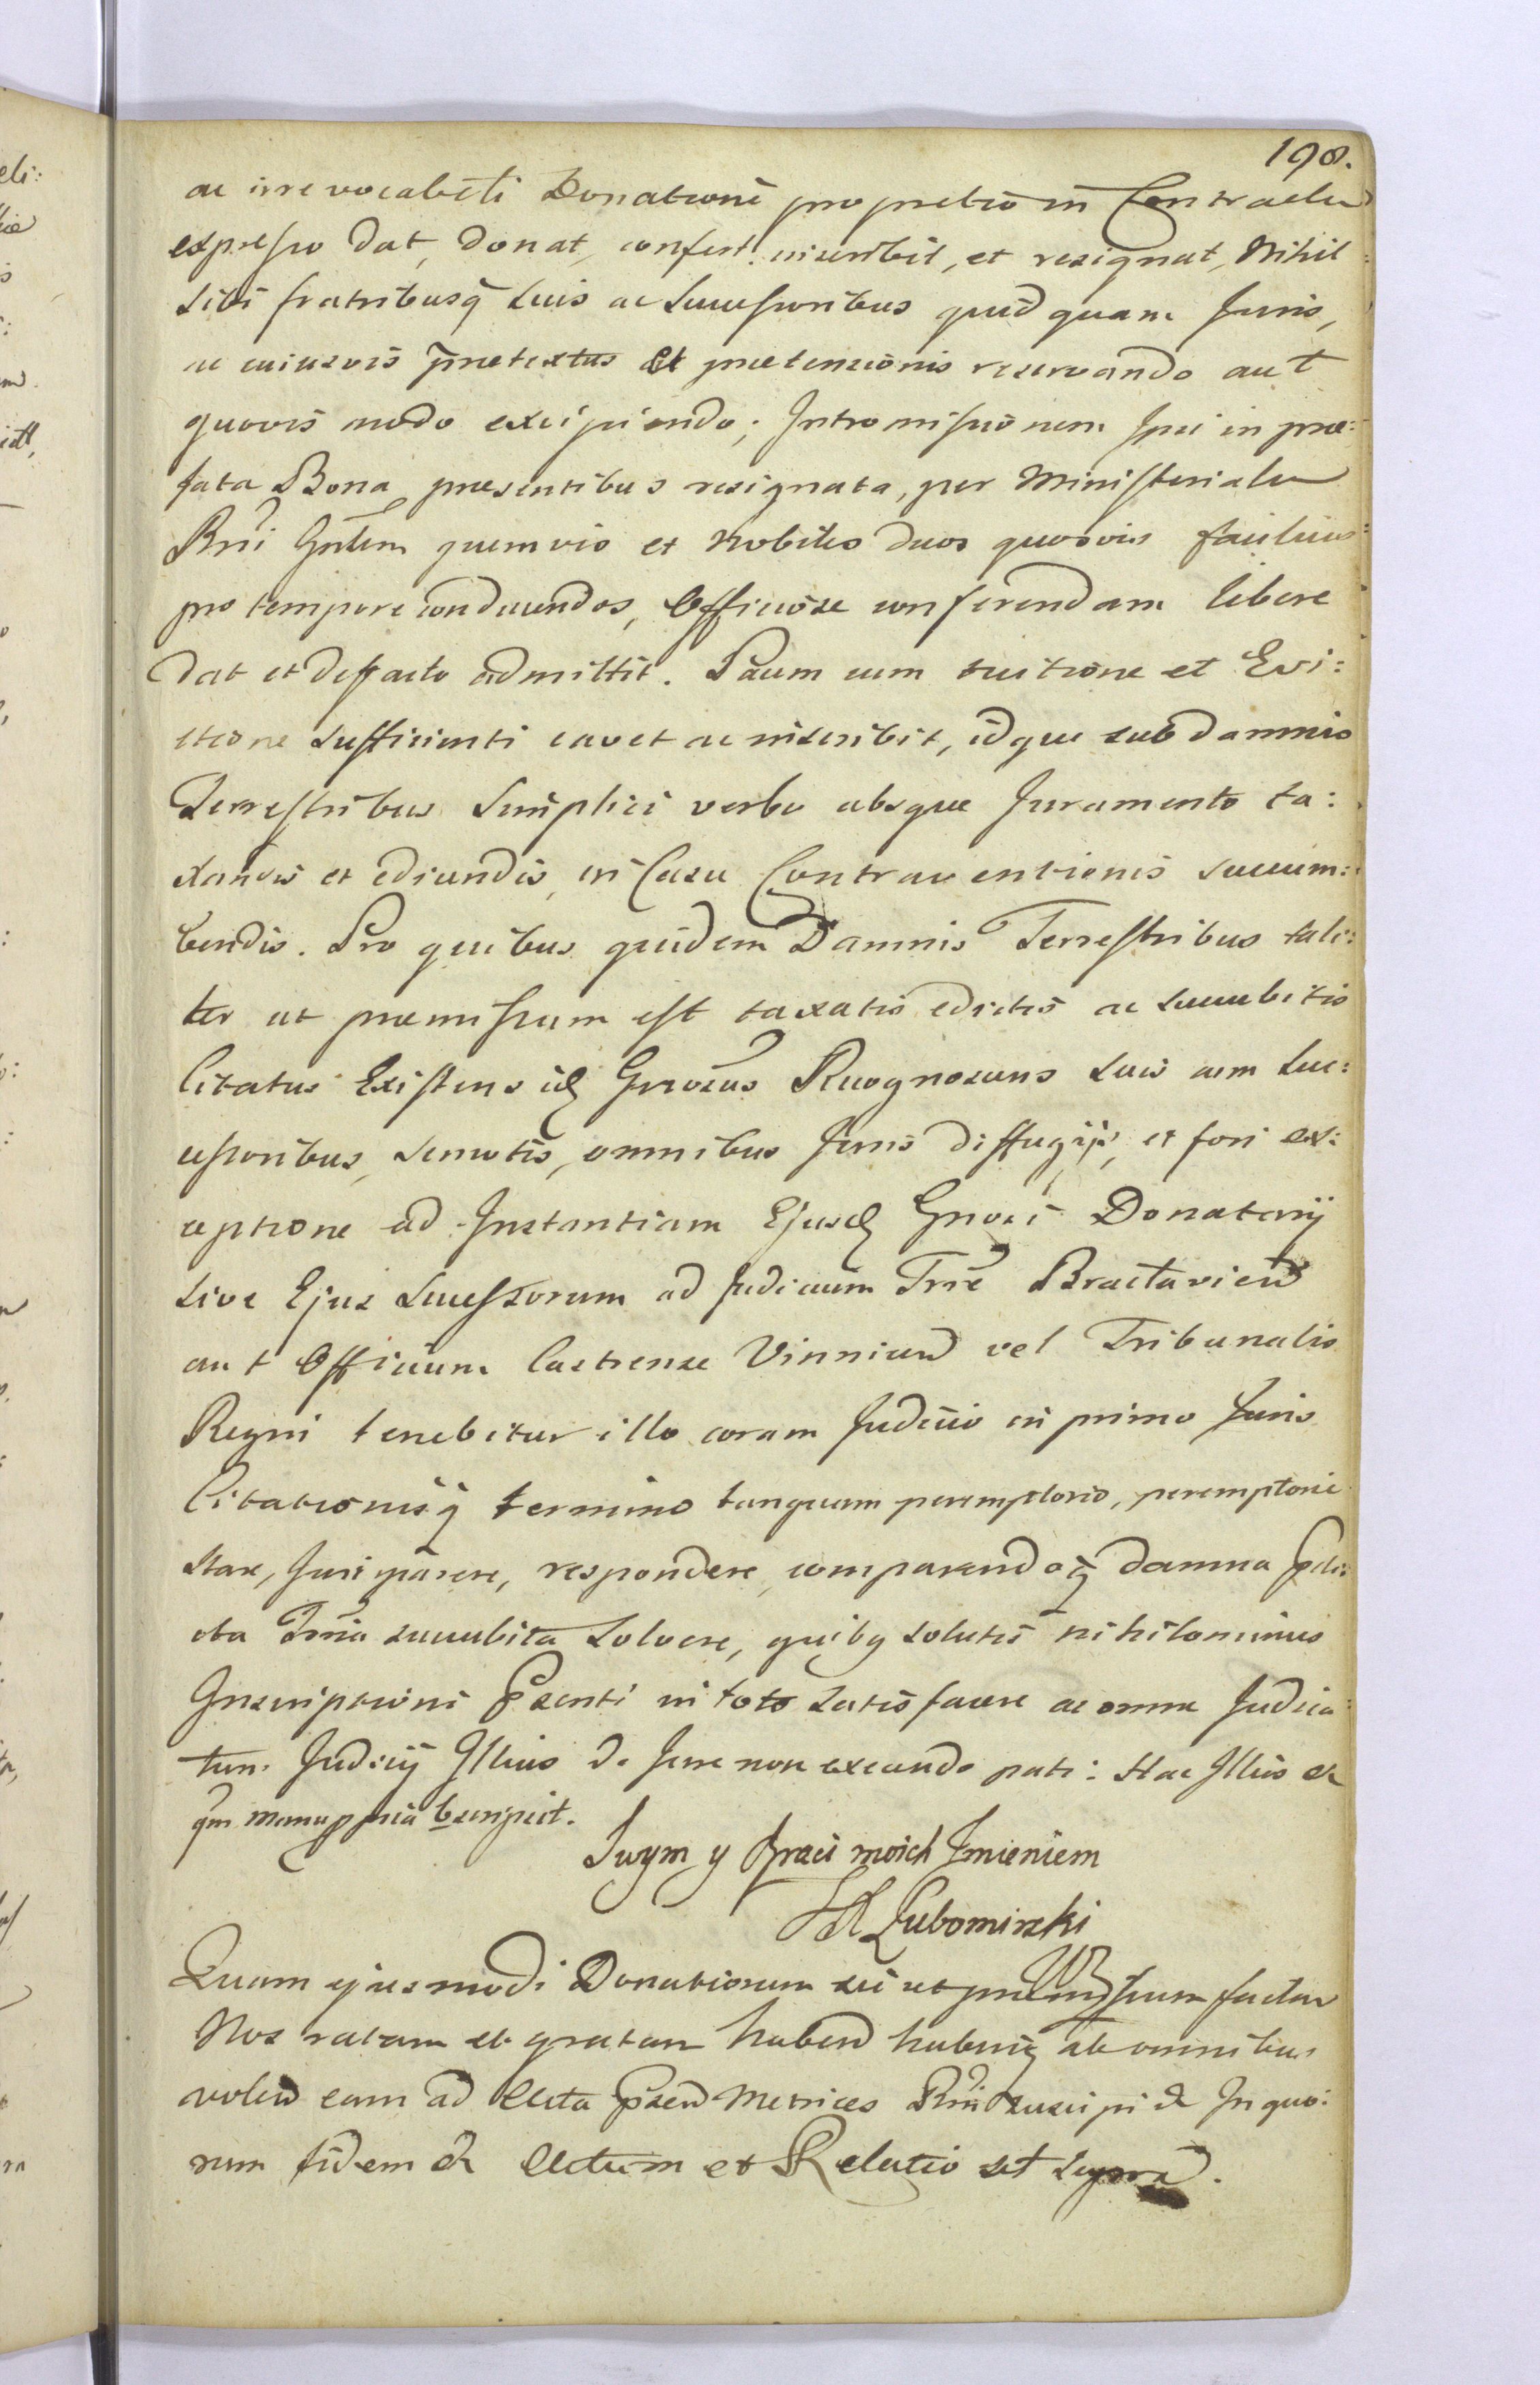 198.
ac irrevocabili Donationi pro pretio in Contractu
expresso dat, donat, confert inscribit, et resignat, Nihil
sibi fratribusq̃ suis ac Successoribus quidquam Juris,
ac cuiusvis prætextus et prætensionis reservando aut
quovis modo excipiendo; Intromissionem Ipsi in præ:
fata Bona præsentibus resignata, per Ministerialem
Rni Gnlem quemvis et Nobiles duos quosvis facilius
pro tempore conducendos, Officiose conferendam libere
dat et defacto admittit. Pacem cum tuitione et Evi:
ctione sufficienti cavet ac inscribit, idque sub damnis
Terrestribus Simplici verbo absque Juramento ta:
xandis et ediscendis, in Casu Contraventionis succum:
bendis. Pro quibus quidem Damnis Terrestribus tali:
ter ut præmissum est taxatis edictis ac succubitis
Citatus Existens id Gnrosus Recognoscens suis cum Suc:
cessoribus, semotis, omnibus Juris diffugijs, et fori ex:
ceptione ad Instantiam Ejusd Gnosi Donatarij
sive Ejus Successorum ad Judicium Trre Braclavien
aut Officium Castrense Vinnicen vel Tribunalis
Regni tenebitur illo coram Judicio in primo Juris
Citationisq̃ termino tanquam peremptorio, peremptorie
Stare, Juri parere, respondere, comparendoq̃ damna pdi:
cta Trria succubita Solvere, quibq solutis nihilominus
Inscriptioni Psenti in toto satisfacere ac omne Judica:
tum Judicij Illius de Jure non exeundo pati: Hac Illius &
qm manu ppria bscripsit.
Swym y braci moich Imieniem
Lubomirski
Quam ejusmodi Donationem sic ut præmissum factam
Nos ratam et gratam haben haberiq ab omnibus
volen eam ad Acta psen Metrices Rni suscipi & In quo:
rum fidem & Actum et Relatio ut supra.